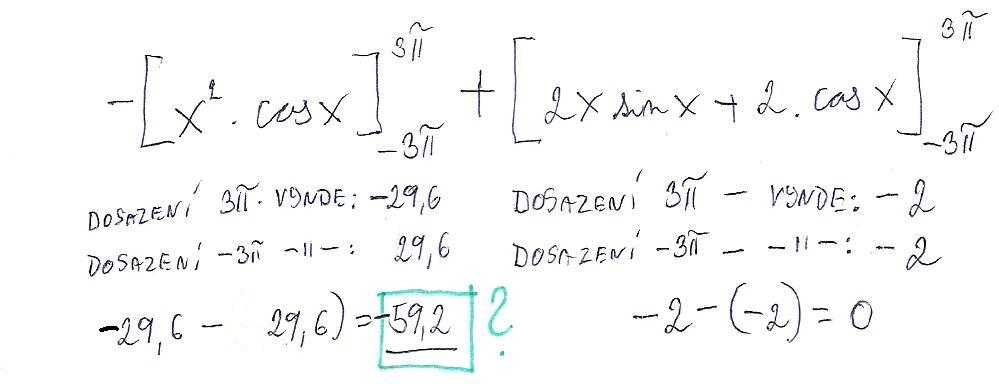 -[x². cosx]^{3π}_{-3π} + [2x sinx + 2. cosx]^{3π}_{-3π}
DOSAZENÍ 3π. VYJDE: -29,6 DOSAZENÍ 3π - VYJDE: -2
DOSAZENÍ -3π -11-: 29,6 DOSAZENÍ -3π - -11-: -2
-29,6 - 29,6) = -59,2 ? -2-(-2) = 0